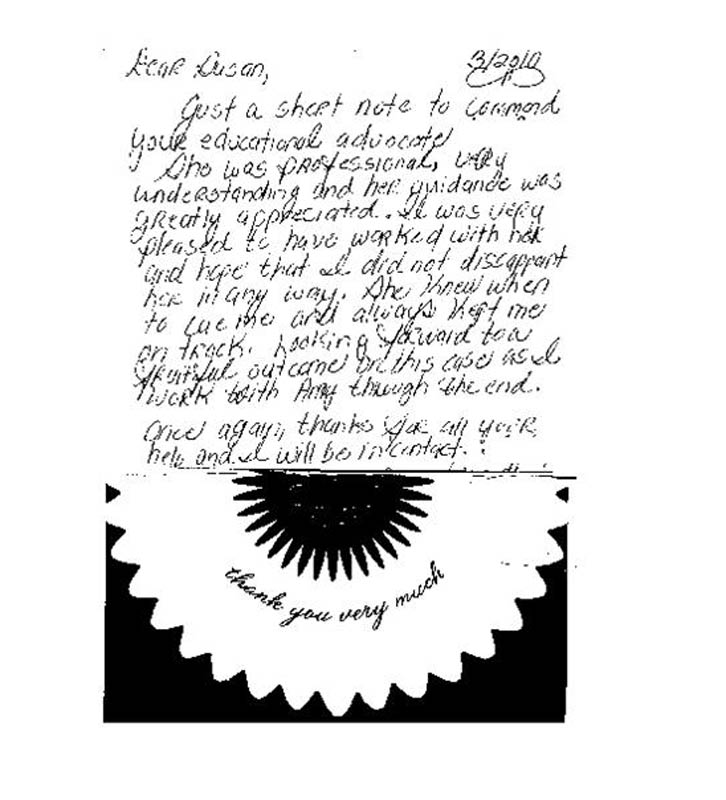 Dear Susan, 3/2010
Just a short note to commend
your educational advocate
She was professional, very
understanding and her guidance was
greatly appreciated. I was very
pleased to have worked with her
and hope that I did not disappoint
her in any way. She knew when
to cue me and always kept me
on track. Looking forward to a
fruitful outcome on this case as I
work with Amy through the end.
Once again, thanks for all your
help and I will be in contact.
thank you very much